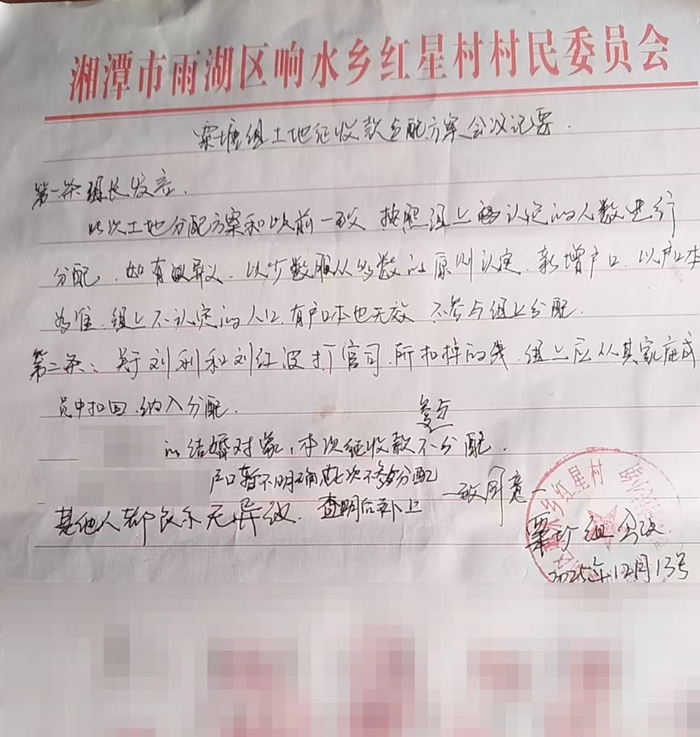 湘潭市雨湖区响水乡红星村村民委员会
栗塘组土地征收款分配方案会议记要.
第一条组长发言.
此次土地分配方案和以前一致 按照组上的认定的人数进行
分配.如有异议.以少数服从多数的原则认定.新增户口.以户口本
为准.组上不认定的人口.有户口本也无效 不参与组上分配.
第二条:关于刘利和刘红波打官司.所扣掉的钱.组上应从其家庭成
员中扣回.纳入分配.
参与
的结婚对象,本次征收款不分配.
户口暂不明确此次不参与分配
其他人都表示无异议. 查明后补上 一致同意
乡红星村
组 会议
2025年12月13号